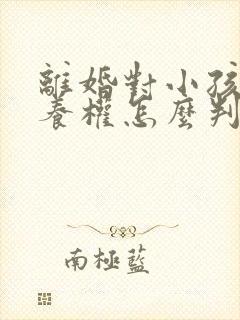 離婚對小孩
養權怎麼判
南極藍